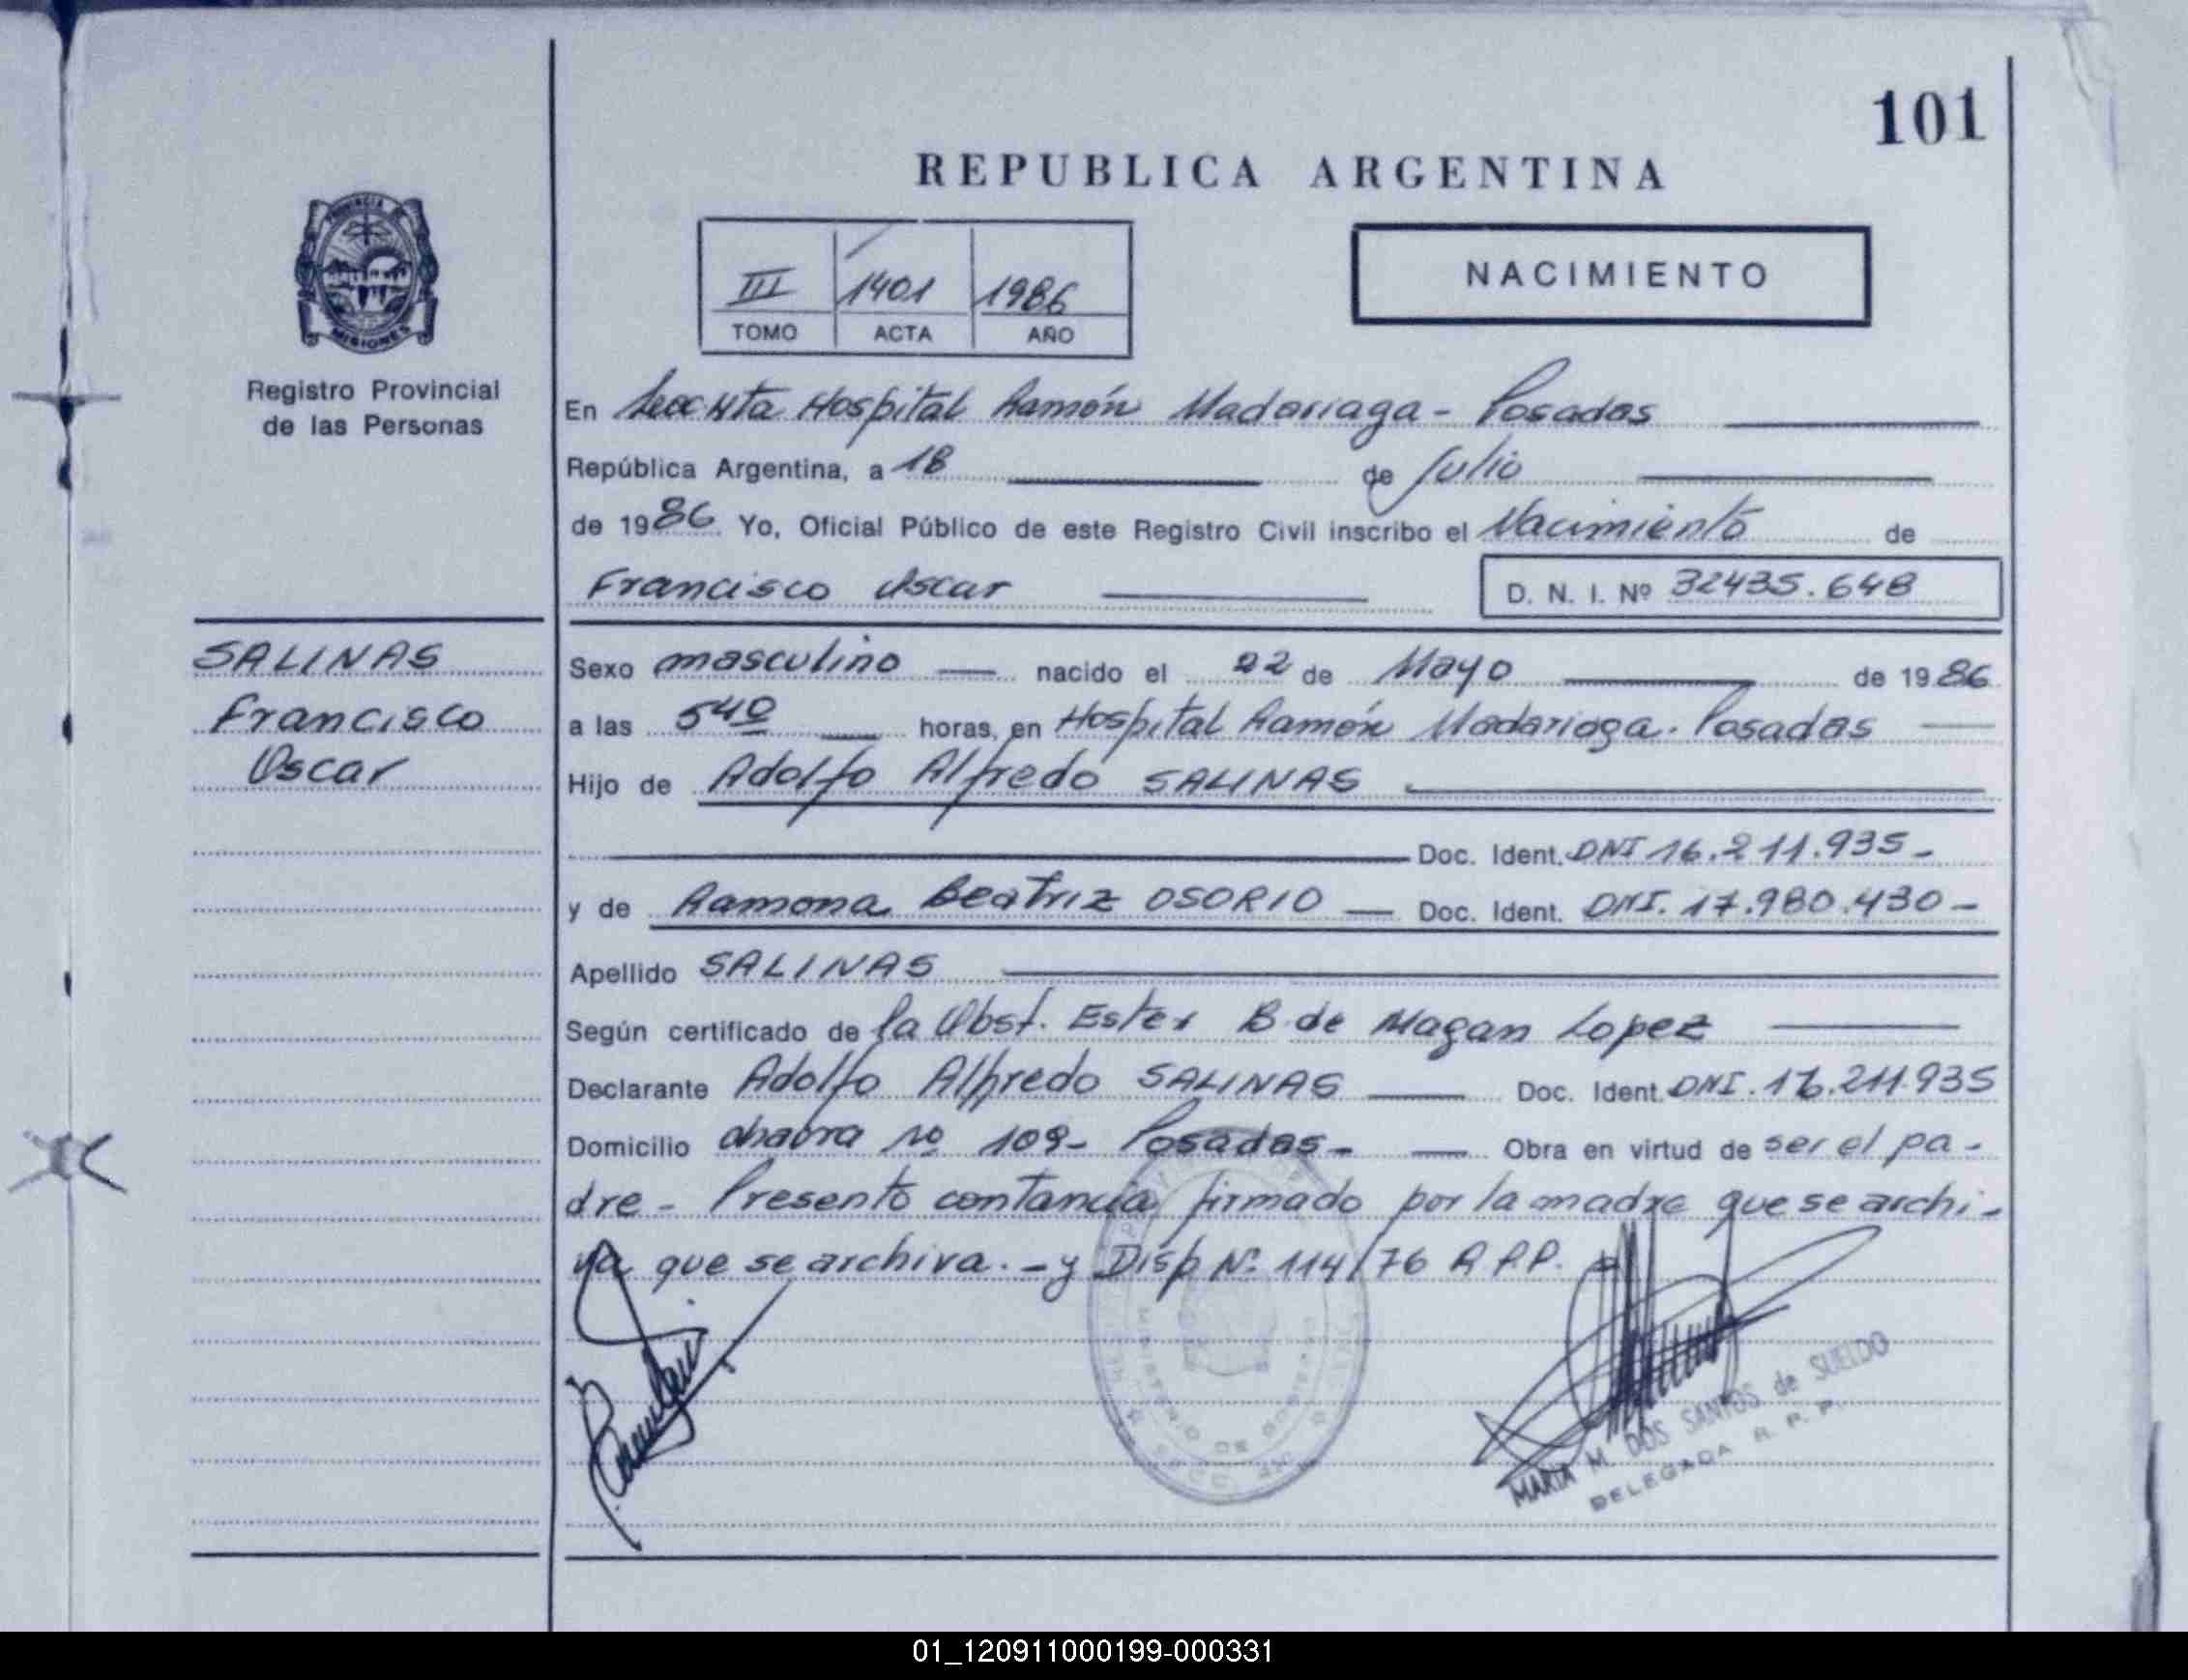 101
REPUBLICA ARGENTINA
PROVINCIA DE
MISIONES
Registro Provincial
de las Personas
III 1401 1986
TOMO ACTA AÑO
NACIMIENTO
En Hospital Ramón Madariaga - Posadas
República Argentina, a 18 de Julio
de 1986 Yo, Oficial Público de este Registro Civil inscribo el Nacimiento de
Francisco Oscar D. N. I. Nº 32435.648
SALINAS
Francisco
Oscar
Sexo masculino nacido el 22 de Mayo de 1986
a las 540 horas, en Hospital Ramón Madariaga. Posadas
Hijo de Adolfo Alfredo SALINAS
Doc. Ident. DNI 16.211.935-
y de Ramona Beatriz OSORIO Doc. Ident. DNI. 17.980.430-
Apellido SALINAS
Según certificado de la Obst. Ester B. de Magan Lopez
Declarante Adolfo Alfredo SALINAS Doc. Ident. DNI. 16.211.935
Domicilio nº 109- Posadas- Obra en virtud de ser el pa-
dre - Presentó contancia firmado por la madre que se archi-
va que se archiva. - y Disp Nº 114/76 R.P.P.
MARIA M. DOS SANTOS de SUELDO
DELEGADA R. P. P.
01_120911000199-000331